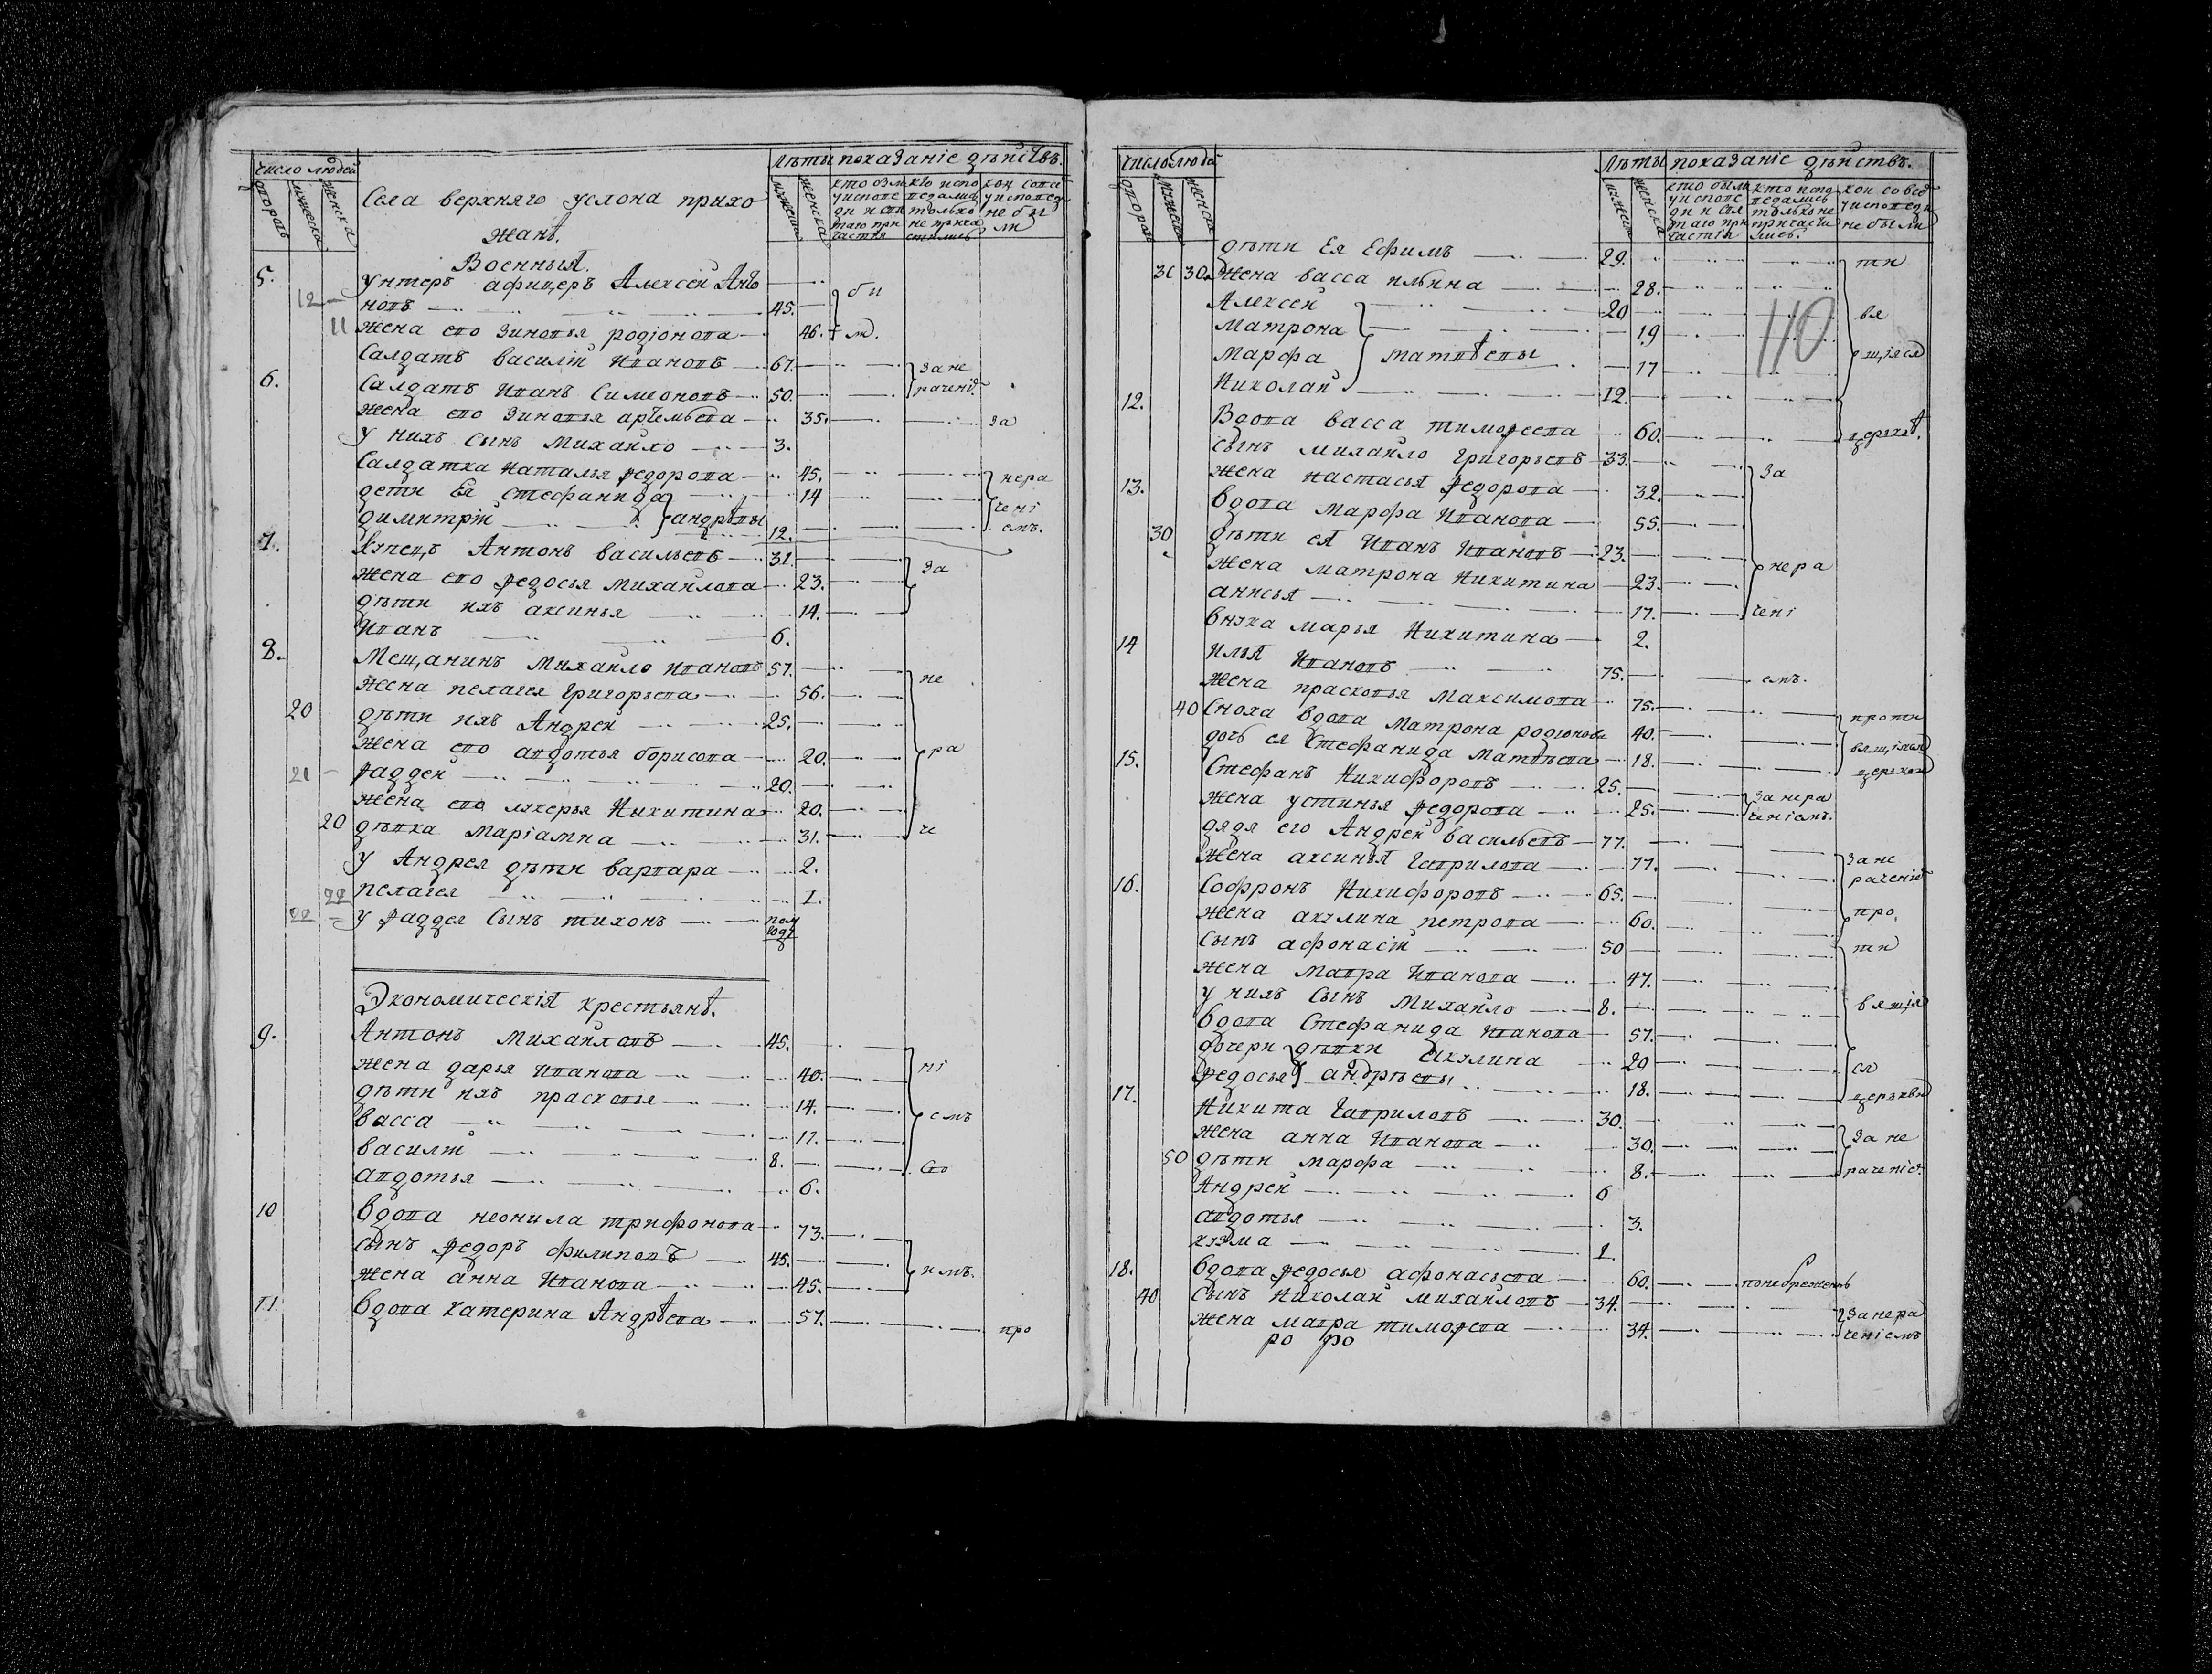 число людей
лѣты показанiе дѣйствъ.
дворовъ мужеска женска
мужеска женска
кто были у исповеди и святаго причастiя
кто исповедались только не причастились
кои совсем у исповеди не были
Села верхняго услона прихо
жанѣ.
Военныя.
5. унтеръ афицеръ Алексей Анто
12 новъ 45.
11 жена его Зиновья родiонова 46. бы ли.
Салдатъ василiй Ивановъ 67. за не
6. Салдатъ Иванъ Симеоновъ 50. раченiе.
жена его Зиновья артемьева 35. за
у нихъ сынъ Михайло 3.
Салдатка Наталья федорова 45. нера
дети Ея стефанида 14 ченi
димитрiй андрѣевы 12. емъ.
7. Купецъ Антонъ васильевъ 31.
жена его федосья михайлова 23. за
дѣти ихъ аксинья 14.
Иванъ 6.
8. Мещанинъ Михайло ивановъ 57.
жена пелагея Григорьева 56. не
20 дѣти ихъ Андрей 25.
жена его авдотья борисова 20. ра
21 фаддей 20.
жена его лукерья Никитина 20.
20 дѣвка марiамна 31. че
у Андрея дѣти варвара 2.
22 пелагея 1.
22 у фаддея сынъ тихонъ пол года
Экономическiя крестьянѣ.
9. Антонъ михайловъ 45.
жена дарья иванова 40. нi
дѣти ихъ прасковья 14.
васса 11. емъ
василiй 8.
авдотья 6. со
10 вдова неонила трифонова 73.
сынъ федоръ филиповъ 45.
жена анна Иванова 45. имъ.
11. вдова катерина Андрѣева 57. про
число люде
лѣты показанiе дѣйствъ.
дворовъ мужеска женска
мужеска женска
кто были у исповеди и святаго причастiя
кто исповедались только не причастились.
кои совсе у исповеди не были
дѣти Ея Ефимъ 29. ти
30 30. жена васса ильина 28.
110
Алексей 20 вя
матрона 19
марфа матвѣевы 17 щiяся
Николай 12.
12. вдова васса тимофеева 60. церкви.
сынъ михайло Григорьевъ 33.
жена настасья федорова 32. за
13. вдова марфа Иванова 55.
30 дѣти ея Иванъ Ивановъ 23.
жена матрона Никитина 23. нера
анисья 17. ченi
внука марья Никитина 2.
14 илья Ивановъ 75. емъ.
жена прасковья максимова 75.
40 сноха вдова матрона родионова 40. проти
дочь ея стефанида матвѣева 18. вящiяся церкви
15. Стефанъ Никифоровъ 25.
жена устинья федорова 25. за нера ченiемъ.
дядя его Андрей васильевъ 77.
жена аксинья гаврилова 77. за не
16. Софронъ Никифоровъ 65. раченiе
жена акулина петрова 60. про,
сынъ афонасiй 50 ти
жена мавра Иванова 47.
у нихъ сынъ михайло 8. вящiя
вдова Стефанида иванова 57.
дочери дѣвки акулина 20 ся
федосья андрѣевы 18. церкви
17. Никита гавриловъ 30.
жена анна Иванова 30. за не
50 дѣти марфа 8. раченiе.
Андрей 6
авдотья 3.
кузма 1.
18. вдова федосья афонасьева 60. понебрежению
40 сынъ Николай михайловъ 34. за нера
жена мавра тимофеева 34. ченiемъ
ро ро